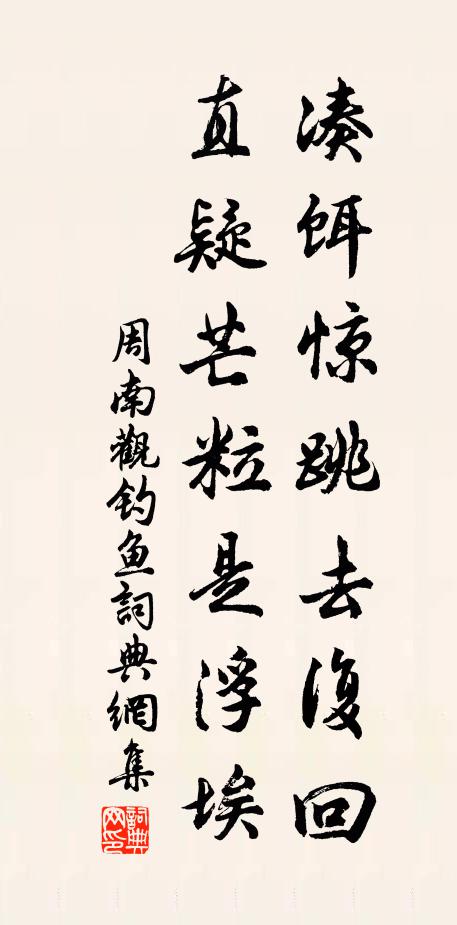 凑饵惊跳去復回
直疑芒粒是浮埃
周南觀钓鱼詞典網集
詞典网印